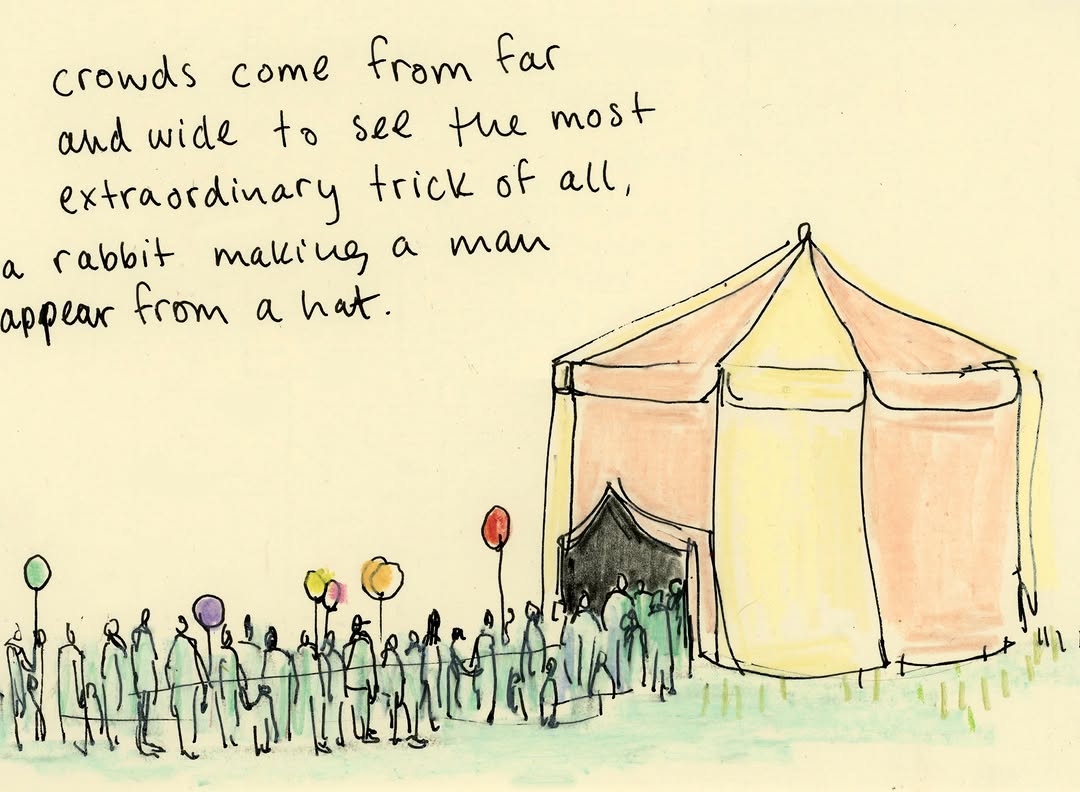 crowds come from far
and wide to see the most
extraordinary trick of all,
a rabbit making a man
appear from a hat.